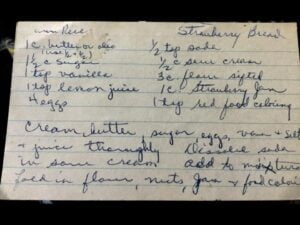 Strawberry Bread
1 c. butter or oleo ½ tsp soda
1½ c sugar ½ c sour cream
1 tsp vanilla 3c flour sifted
1 tsp lemon juice 1c Strawberry Jam
4 eggs 1 tsp red food coloring
Cream, butter, sugar, eggs, van + salt
+ juice thoroughly Dissolve soda
in sour cream add to mixture
fold in flour, nuts, Jam + food color